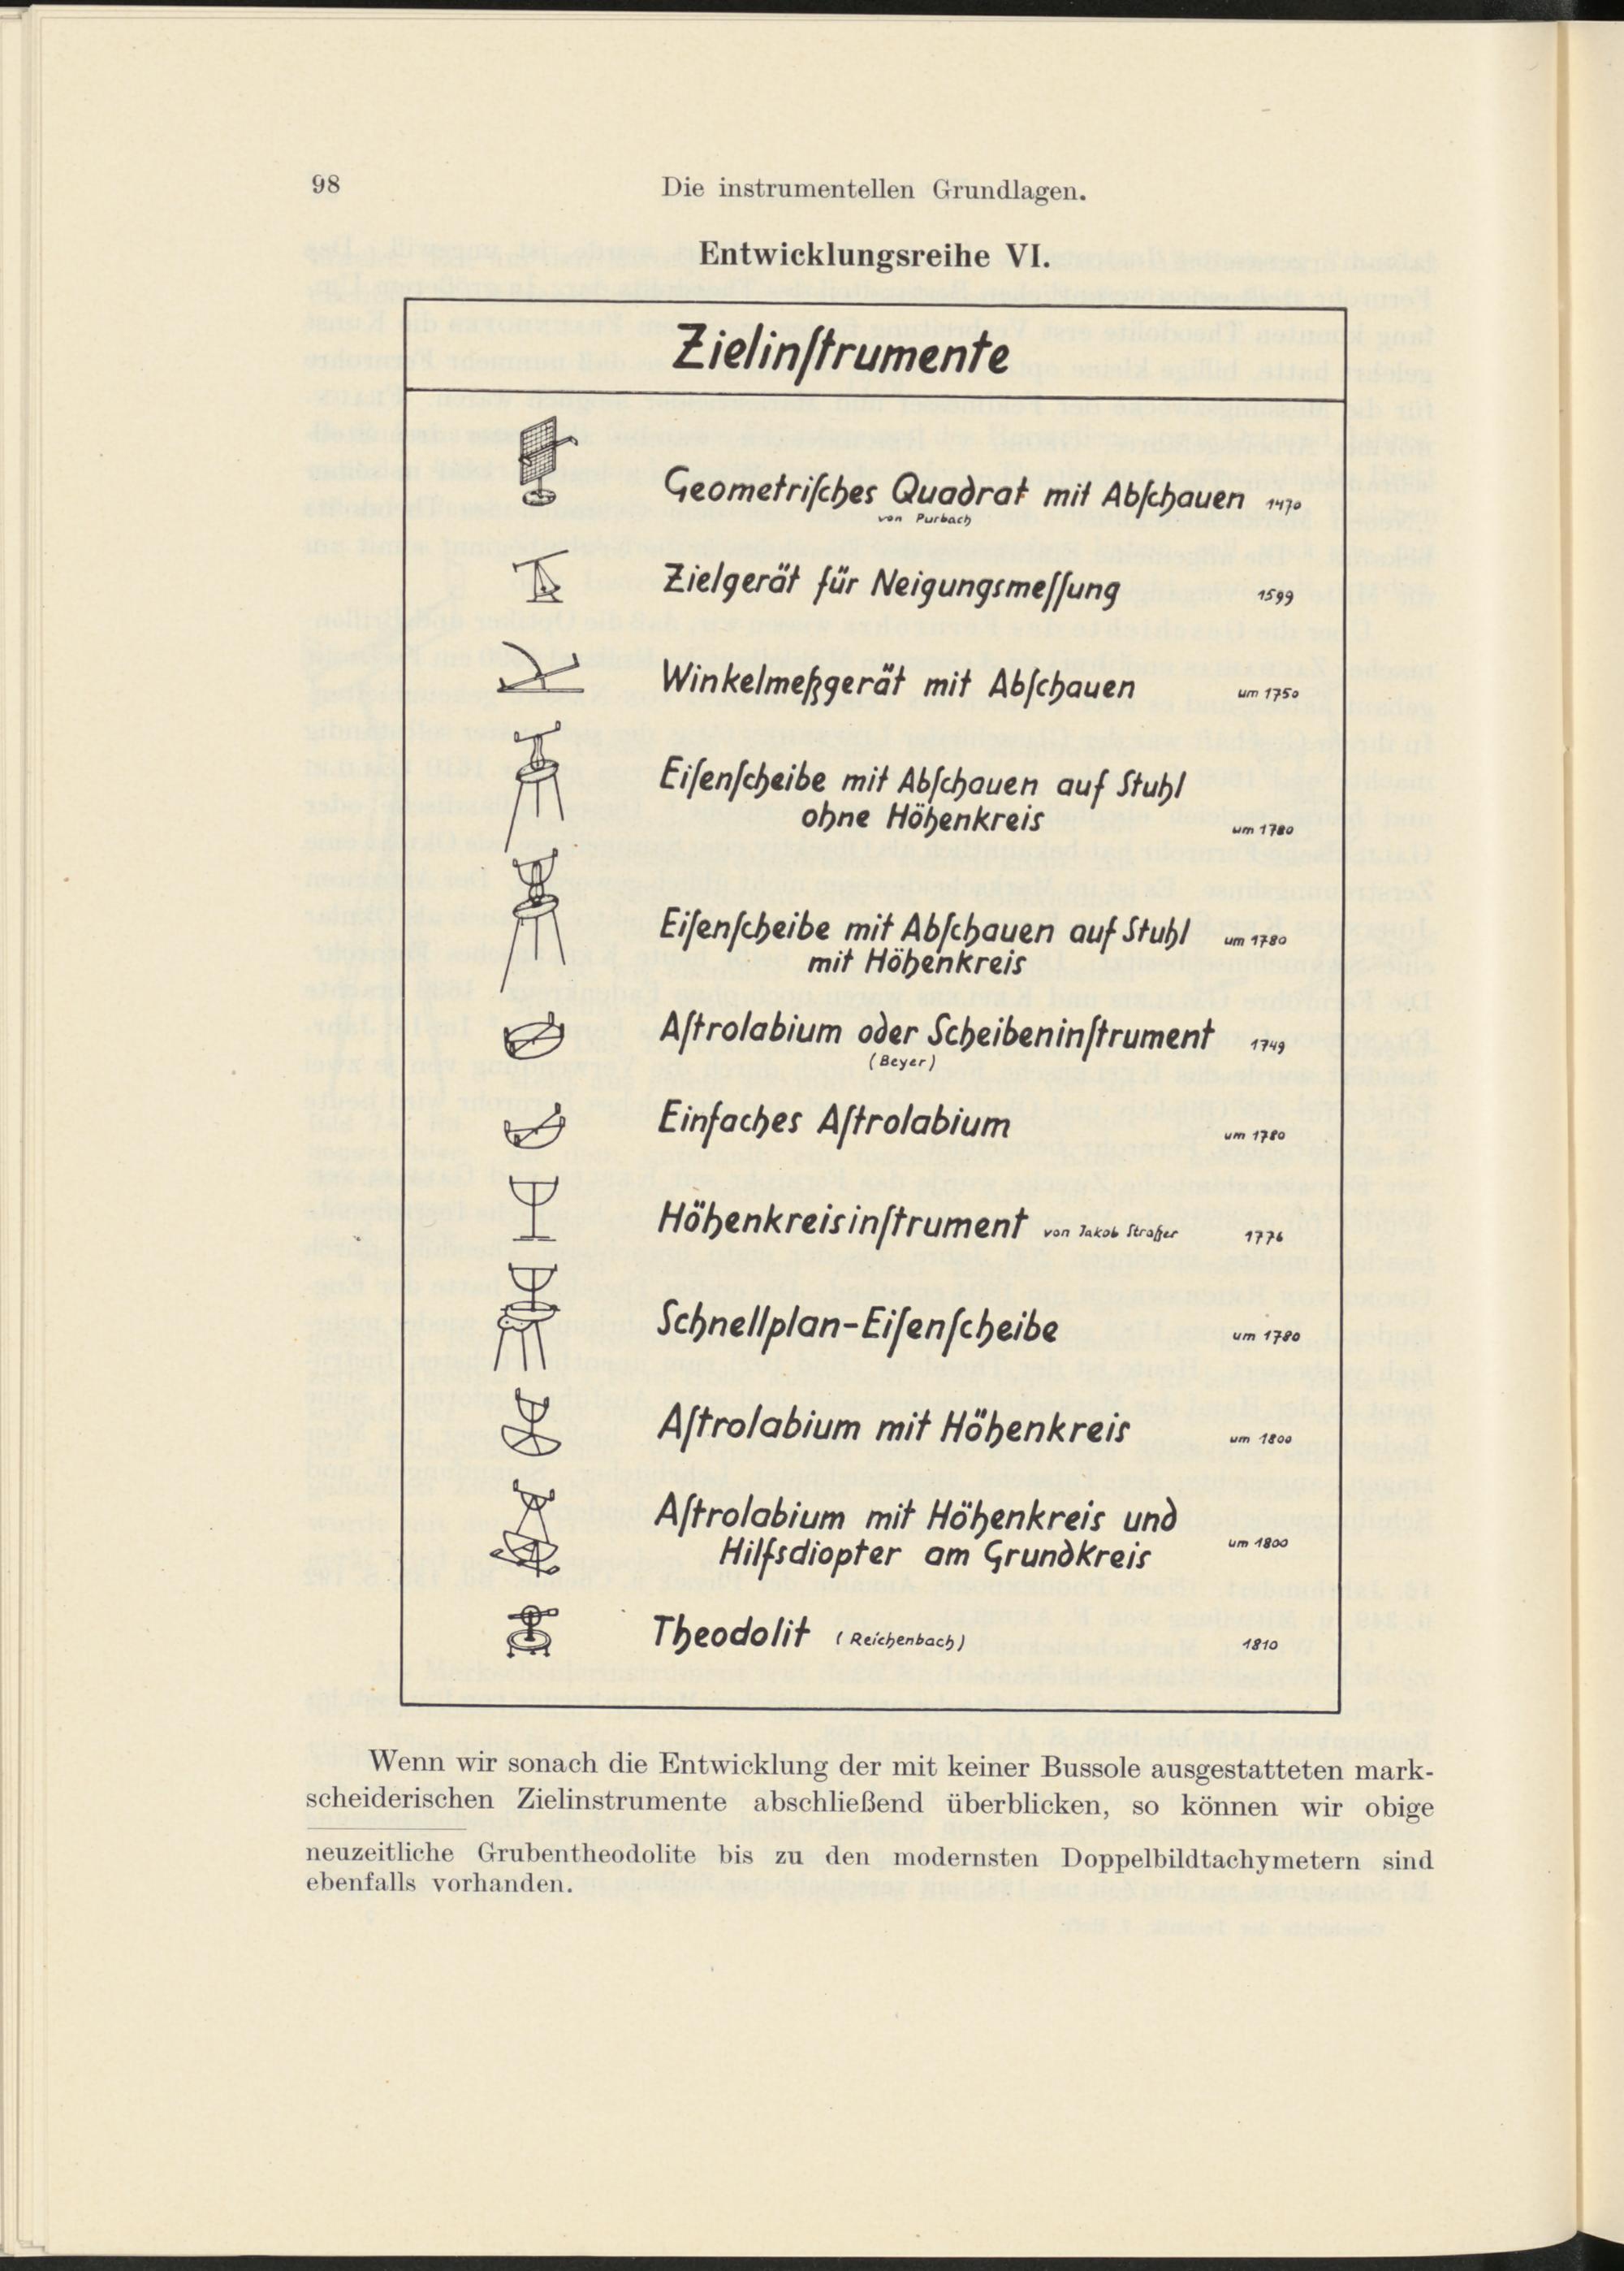 98
Die instrumentellen Grundlagen.
Entwicklungsreihe VI.
Zielinſtrumente
Geometriſches Quadrat mit Abſchauen 1470
von Purbach
Zielgerät für Neigungsmeſſung 1599
Winkelmeßgerät mit Abſchauen um 1750
Eiſenſcheibe mit Abſchauen auf Stuhl
ohne Höhenkreis um 1780
Eiſenſcheibe mit Abſchauen auf Stuhl um 1780
mit Höhenkreis
Aſtrolabium oder Scheibeninſtrument 1749
(Beyer)
Einfaches Aſtrolabium um 1780
Höhenkreisinſtrument von Jakob Straßer 1776
Schnellplan-Eiſenſcheibe um 1780
Aſtrolabium mit Höhenkreis um 1800
Aſtrolabium mit Höhenkreis und
Hilfsdiopter am Grundkreis um 1800
Theodolit (Reichenbach) 1810
Wenn wir sonach die Entwicklung der mit keiner Bussole ausgestatteten mark-
scheiderischen Zielinstrumente abschließend überblicken, so können wir obige
neuzeitliche Grubentheodolite bis zu den modernsten Doppelbildtachymetern sind
ebenfalls vorhanden.